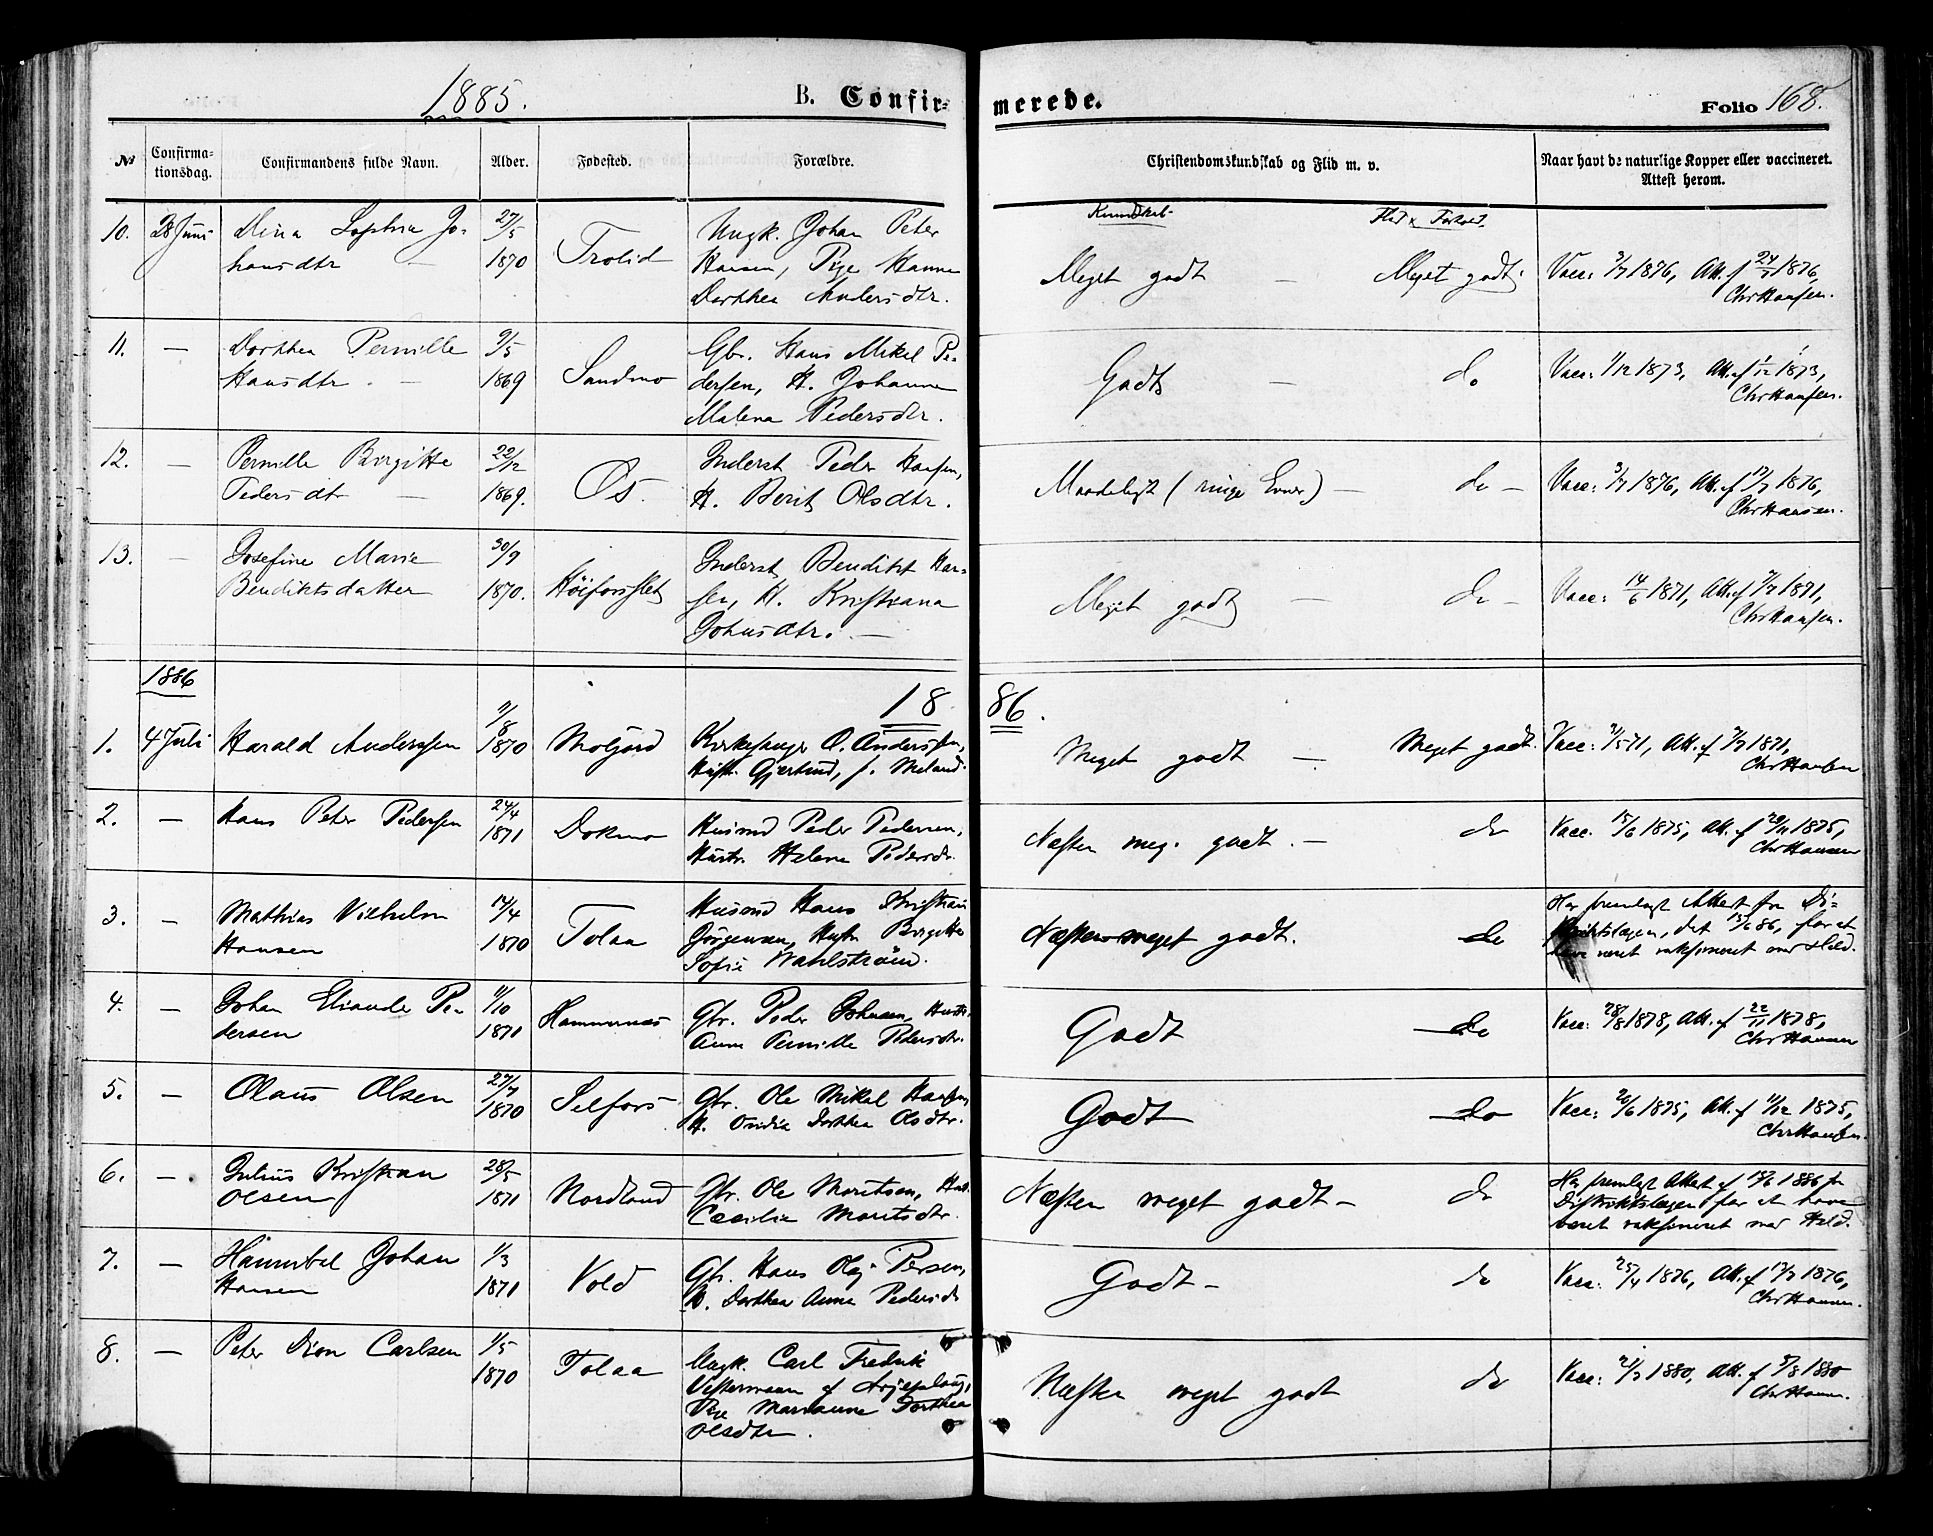 1885. B. Confir- merede. Folio 168.
№ Confirma-tionsdag. Confirmandens fulde Navn. Alder. Fødested. Forældre. Christendomskundskab og Flid m. v. Naar havt de naturlige Kopper eller vaccineret. Attest herom.
Kundskab Flid &
10. 28 Juni Dina Sophia Jo- 27/5 Ungk. Johan Peter
hansdtr — 1870 Trolid Hansen, Pige Hanna Meget godt — Meget godt. Vacc: 3/7 1876, Att. f 24/7 1876,
Dorthea Andersdtr. Chr Hansen.
11. — Dorthea Pernille 9/5 Gbr. Hans Mikal Pe-
Hansdtr. — 1869 Sandmo dersen, H. Johanna Godt — do Vacc: 1/12 1873, Att. f 1/12 1873,
Malena Pedersdtr. Chr Hansen.
12. — Pernille Birgitte 22/12 Inderst Peder Hansen,
Pedersdtr — 1869. Øs. H. Berit Olsdtr. Maadeligt (ringe Evner) — do — Vacc: 3/7 1876, Att. f 17/7 1876,
Chr Hansen.
13. — Josefine Marie 30/9 Inderst Bendikt Han-
Bendiktsdatter 1870. Høiforsslet sen, H. Kristiana Meget godt — do — Vacc: 14/6 1871, Att. f 7/7 1871,
Johnsdtr. — Chr Hansen.
1886 18 86.
1. 4 Juli Harald Anderssen 9/8 1870 Moljord Kirkesanger O. Anderssen, Meget godt — Meget godt. Vacc: 9/5 71, Att. f 7/7 1871,
Hustr. Gjertrud, f. Meland. Chr Hansen
2. — Hans Peter Pedersen 24/4 1871 Dokmo Husmd Peder Pedersen, Næsten meg. godt. — do Vacc. 15/6 1875, Att. f 29/11 1875,
Hustr. Helena Pedersdr. Chr Hansen
3. — Mathias Vilhelm 14/4 Husmd Hans Kristian Har fremlagt Attest fra Di-
Hansen 1870 Tolaa Jørgensen, Hustr Birgitte Næsten meget godt. do striktslægen, dat 15/6 86, for at
Sofie Wahlstrøm. have været vaksineret med Held.
4. — Johan Pe- 11/10 Gbr. Peder Johnsen, Hustr.
dersen 1871 Hammernæs Anne Pernille Pedersdtr. Godt do Vacc: 28/8 1878, Att. f 22/11 1878,
Chr Hansen
5. — Olaus Olsen 27/7 1870 Selfors Gbr. Ole Mikal Hansen, Godt do Vacc: 20/6 1875, Att. f 11/12 1875,
H. Dorthea Olsdtr. Chr Hansen.
6. — Julius Kristian 28/5 Har fremlagt Attest f 15/6 1886 fr
Olsen 1871 Nordland Gbr. Ole Moritsen, Hust. Næsten meget godt — do Distriktslægen for at have
Cecilia Moritsdtr. været vaksineret med Held.
7. — Hannibal Johan 1/3
Hansen 1871 Vold Gbr. Hans Olaj Persen, Godt — do Vacc: 25/4 1876, Att. f 17/7 1876,
H. Dorthea Anna Pedersd. Chr Hansen.
8. — Peter Dion Carlsen 1/5
1870 Tolaa Ungk. Carl Fredrik Næsten meget godt do Vacc: 21/7 1880, Att. f 5/8 1880
Vesterman af Arjeploug, Chr Hansen.
Pige Marianne Dorthea
Olsdtr.